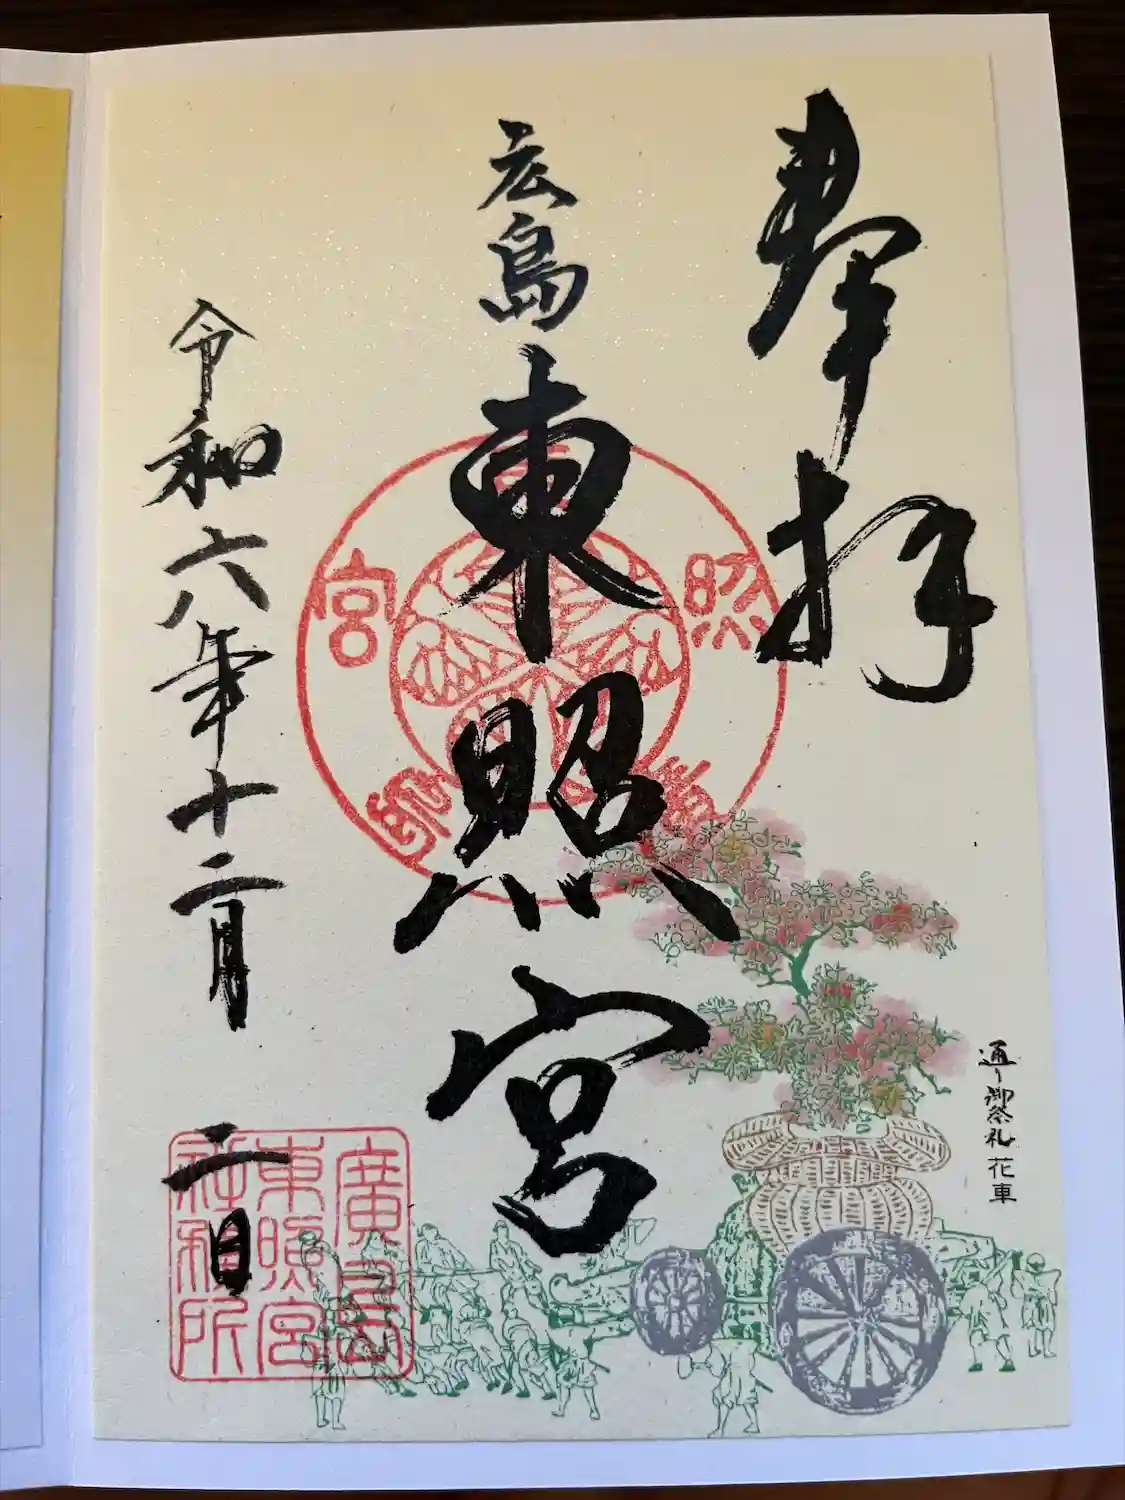 奉拝
広島東照宮
令和六年十二月二日
照
宮
廣島
東照宮
社務所
通り御祭礼 花車